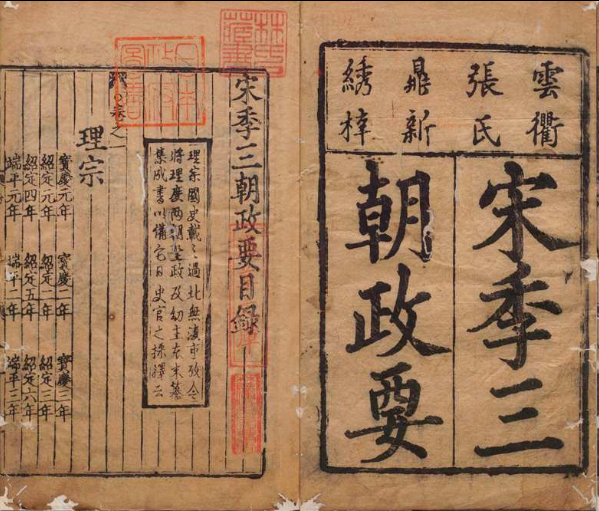 雲衢
張氏
鼎新
綉梓
宋季三
朝政要
宋季三朝政要目錄
理宗國史載之過北無 攷今
將理度两朝聖政及幼主本末纂
集成書以備它日史官之採擇云
卷之一
理宗
寶慶元年 寶慶二年 寶慶三年
紹定元年 紹定二年 紹定三年
紹定四年 紹定五年 紹定六年
端平元年 端平二年 端平三年